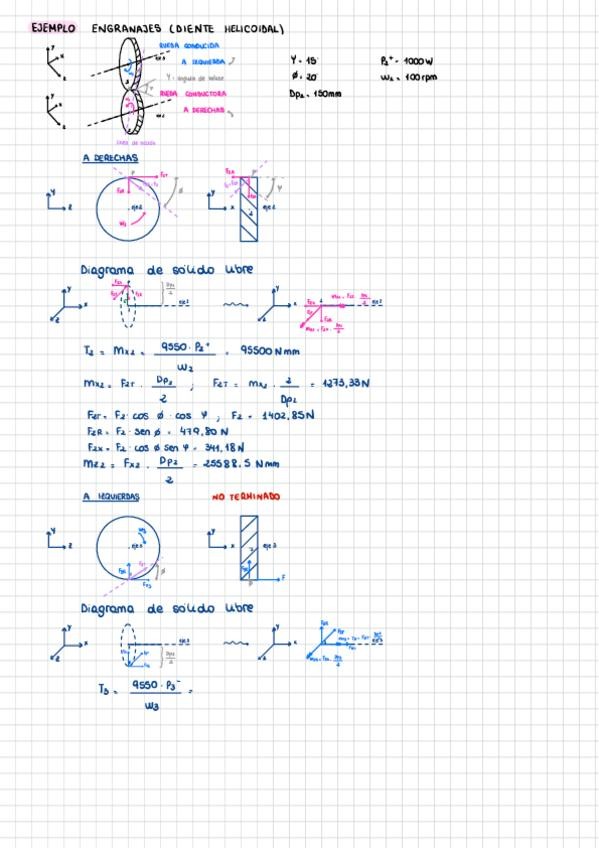 EJEMPLO ENGRANAJES (DIENTE HELICOIDAL)
RUEDA CONDUCIDA
A IZQUIERDA
RUEDA CONDUCTORA
A DERECHAS
Ψ = 15
ϕ = 20
Dp₂ = 150mm
P₂⁺ = 1000W
ω₂ = 100rpm
A DERECHAS
Diagrama de sólido libre
T₂ = Mx₂ = 9550 · P₂⁺ / ω₂ = 95500 Nmm
Mx₂ = F₂T · Dp₂ / 2 ; F₂T = Mx₂ · 2 / Dp₂ = 1273,33N
F₂T = F₂ · cos ϕ · cos Ψ ; F₂ = 1402,85N
F₂R = F₂ · sen ϕ = 479,80 N
F₂X = F₂ · cos ϕ sen Ψ = 341,18N
Mz₂ = Fx₂ · Dp₂ / 2 = 25588.5 Nmm
A IZQUIERDAS NO TERMINADO
Diagrama de sólido libre
T₃ = 9550 · P₃⁻ / ω₃ =